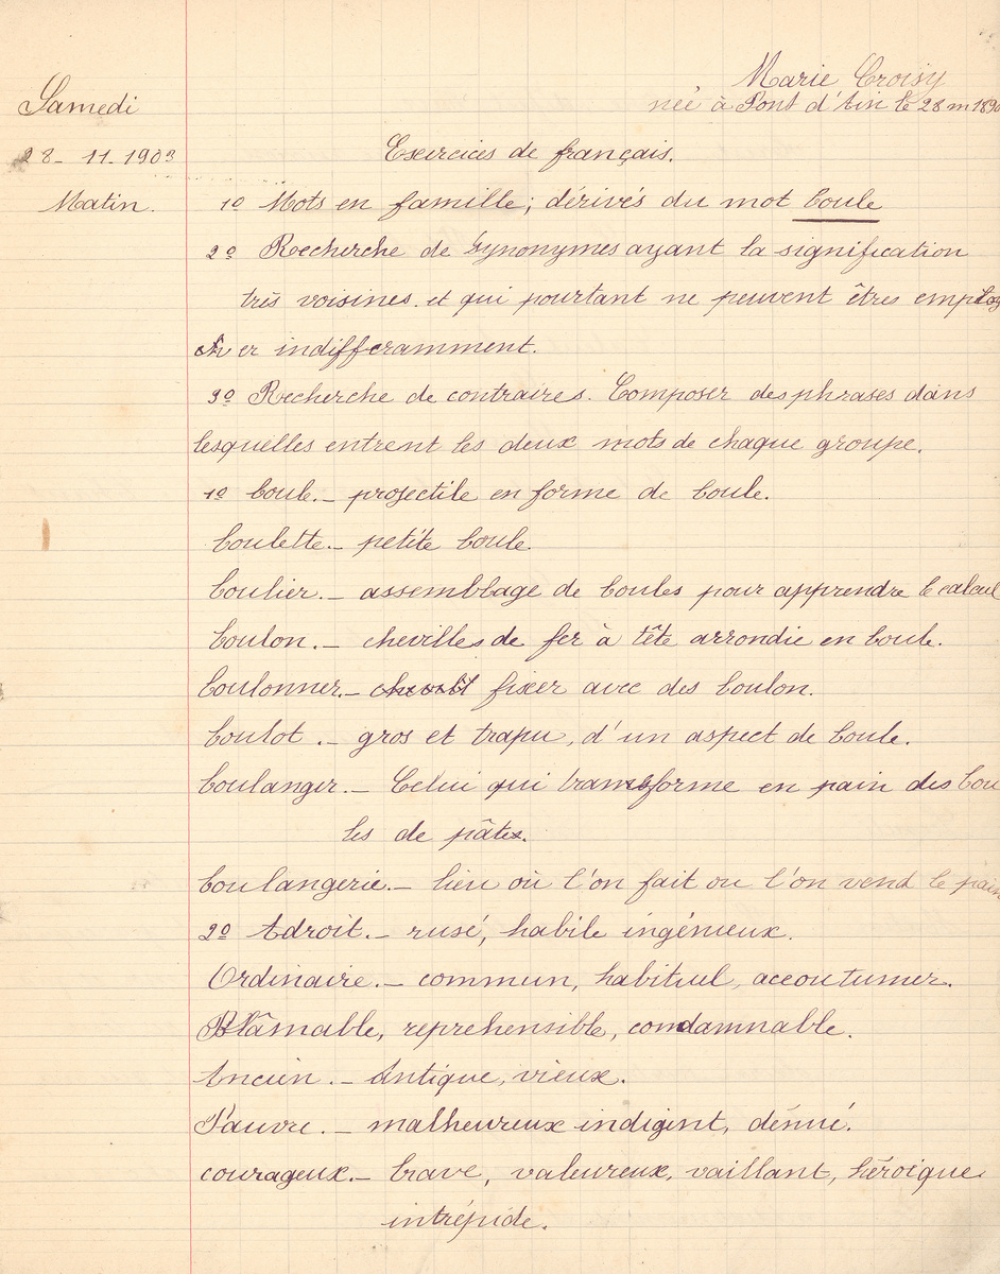 Marie Croisy
Samedi
née à Pont d'Ain le 28 m 1890
28 - 11 - 1903
Exercices de français.
Matin.
1º Mots en famille; dérivés du mot boule
2º Recherche de synonymes ayant la signification
très voisines et qui pourtant ne peuvent êtres employ
er indifferamment.
3º Recherche de contraires. Composer des phrases dans
lesquelles entrent les deux mots de chaque groupe.
1º boule. - projectile en forme de boule.
boulette. - petite boule
boulier. - assemblage de boules pour apprendre le calcul
boulon. - chevilles de fer à tête arrondie en boule.
boulonner. - fixer avec des boulon.
boulot. - gros et trapu, d'un aspect de boule.
boulanger. - Celui qui transforme en pain des bou
les de pâte.
boulangerie. - lieu où l'on fait ou l'on vend le pain
2º Adroit. - rusé, habile ingénieux.
Ordinaire. - commun, habituel, accoutumer.
Blâmable, reprehensible, condamnable.
Ancien. - Antique, vieux.
Pauvre. - malheureux indigent, dénué.
courageux. - brave, valeureux, vaillant, héroïque
intrépide.